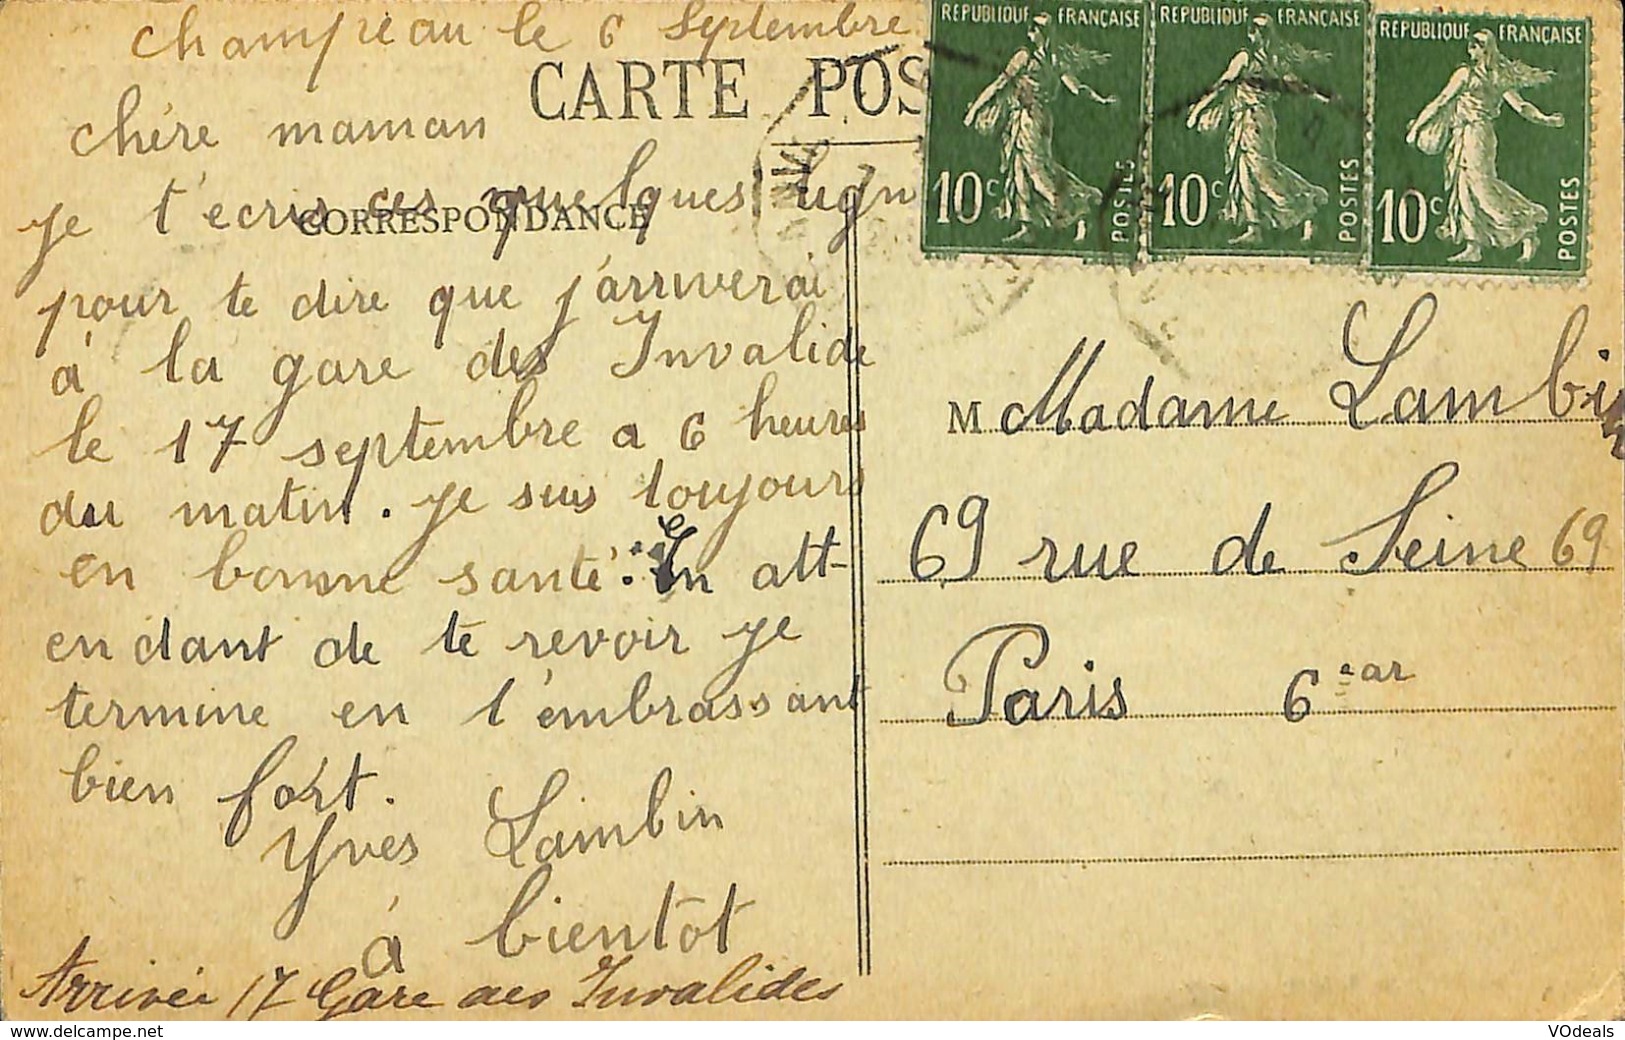 Champeau le 6 Septembre
CARTE POS
chère maman
CORRESPONDANCE
je t'ecris ces quelques lign
pour te dire que j'arriverai
à la gare des Invalide
le 17 septembre a 6 heures
du matin. je suis toujours
en bonne santé. En att-
endant de te revoir je
termine en t'embrassant
bien fort.
Yves Lambin
à bientôt
Arrivée 17 Gare des Invalides
REPUBLIQUE FRANÇAISE
10c POSTES
REPUBLIQUE FRANÇAISE
10c POSTES
REPUBLIQUE FRANÇAISE
10c POSTES
M Madame Lambin
69 rue de Seine 69
Paris 6 ar
www.delcampe.net
VOdeals